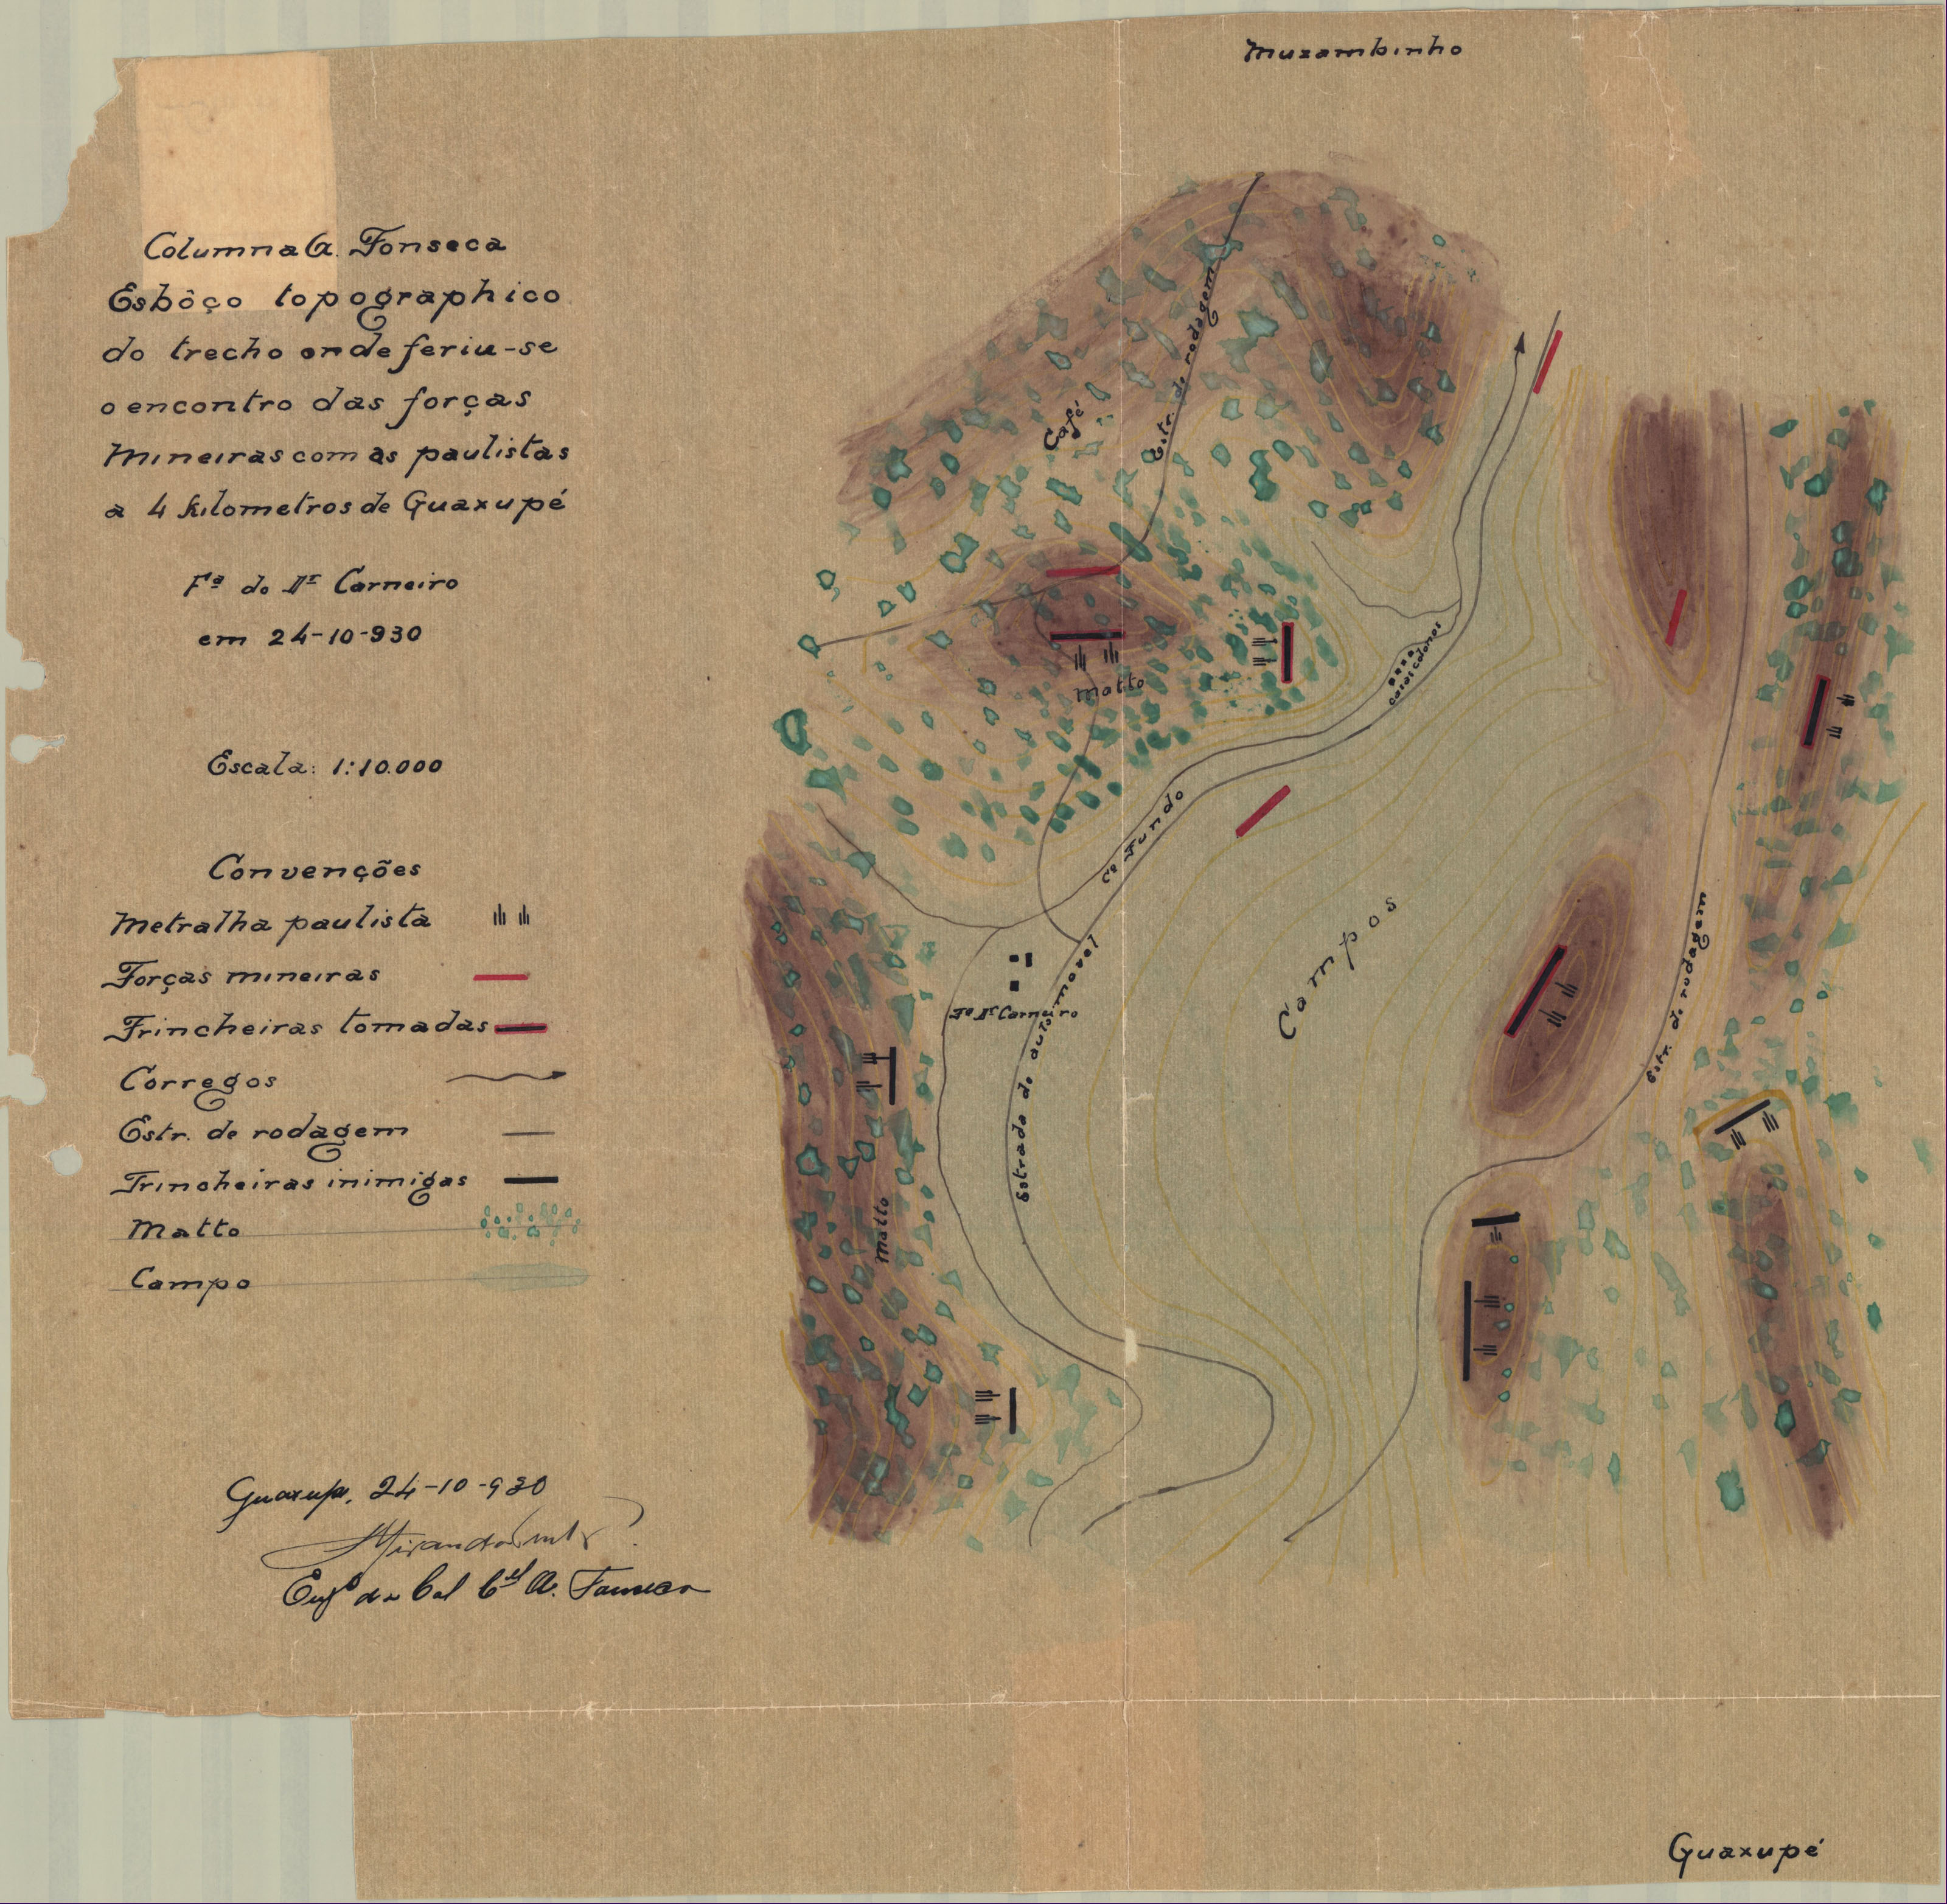 Muzambinho
Columna A. Fonseca
Esbôço topographico
do trecho onde feriu-se
o encontro das forças
Mineiras com as paulistas
a 4 kilometros de Guaxupé
Fª do Dr Carneiro
em 24-10-930
Escala: 1:10.000
Convenções
Metralha paulista
Forças mineiras
Trincheiras tomadas
Corregos
Estr. de rodagem
Trincheiras inimigas
Matto
Campo
Guaxupé, 24-10-930
Engº da Col Cel A. Fonseca
Café
Estr. de rodagem
Matto
casas colonos
Co Fundo
Campos
Fª Dr Carneiro
Estrada de automovel
Estr. de rodagem
Matto
Guaxupé